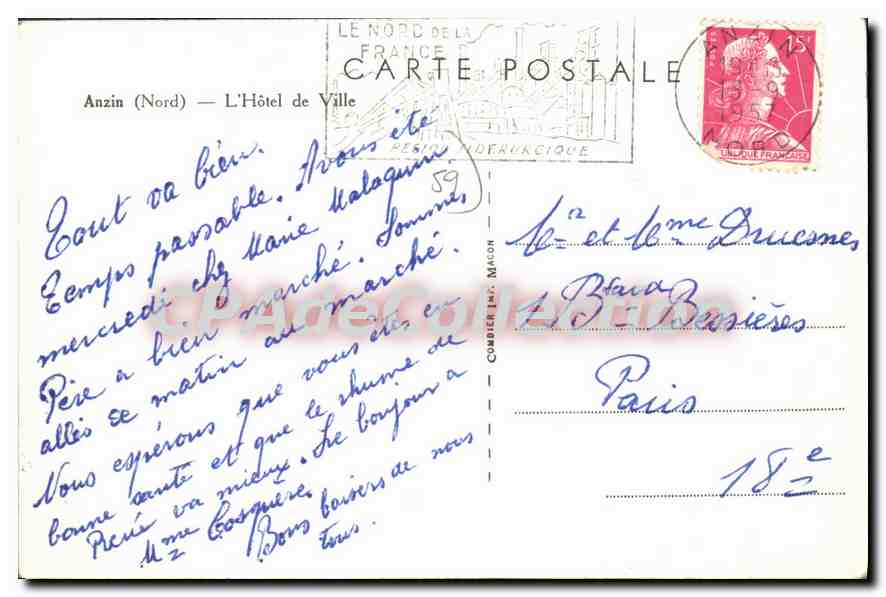 LE NORD DE LA
FRANCE
CARTE POSTALE
Anzin (Nord) — L'Hôtel de Ville
REGION SIDERURGIQUE
POSTES
15F
LIQUE FRANCAISE
ANZIN
195
NORD
59
Tout va bien.
Temps passable. Avons été
mercredi chez Marie Malaquin
Père a bien marché. Sommes
allés ce matin au marché.
Nous espérons que vous êtes en
bonne santé et que le rhume de
René va mieux. Le bonjour à
Mme Cosquère.
Bons baisers de nous
tous.
COMBIER IMP. MACON
Mr et Mme Druesnes
1 Bard Bessières
Paris
18e
CPAdeCollection